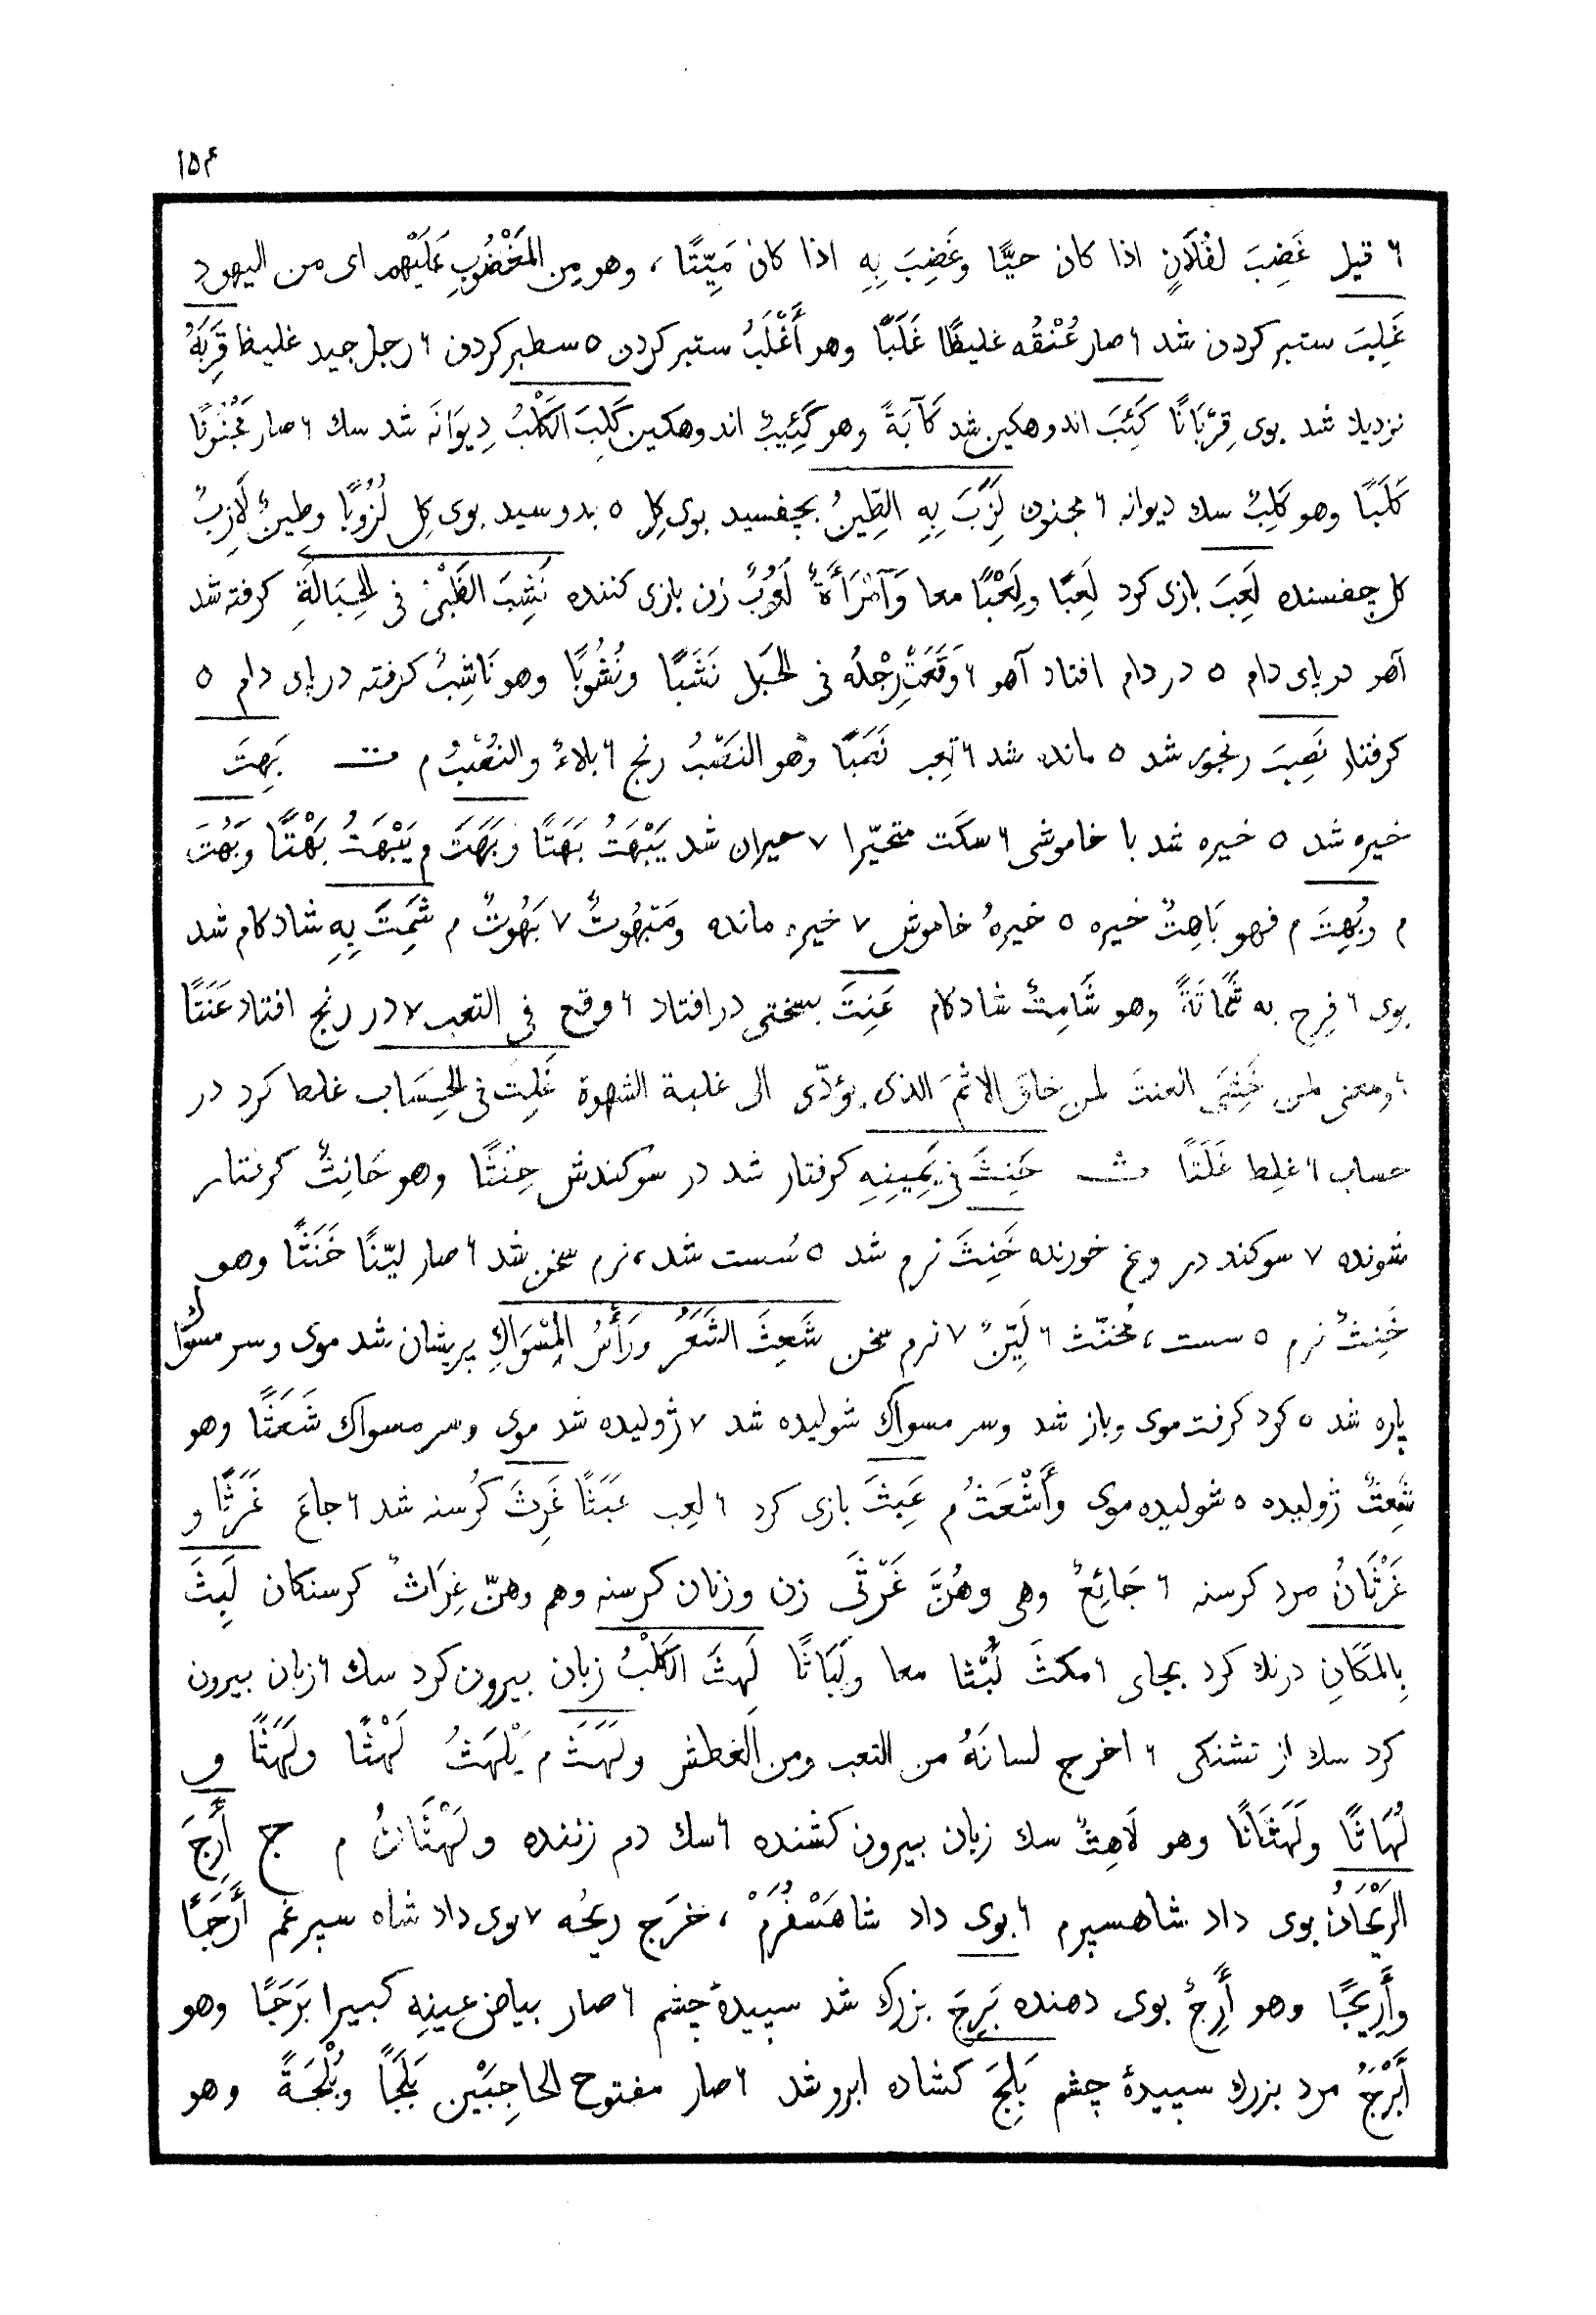 ۱۵۴
۶ قيل غَضِبَ لفُلَانٍ اذا كان حيًّا وغَضِبَ بِهِ اذا كان مَيِّتًا ، وهو مِن المَغْضُوبِ عَلَيْهِم اى من اليهود
غَلِبَ ستبر كردن شد ۶ صار عُنْقُه غليظًا غَلَبًا وهو أَغْلَبُ ستبر كردن ۵ سطبر كردن ۶ رجل جيد غليظ قَرِبَهُ
نزديك شد بوى قِرْبَانًا كَئِبَ اندوهكين شد كَآبَةً وهو كَئِيبٌ اندوهكين كَلِبَ الكَلْبُ دِيوَانَه شد سك ۶ صار مَجْنُونًا
كَلَبًا وهو كَلِبٌ سك ديوانه ۶ مجنون لَزِبَ بِهِ الطِّينُ بچفسيد بوى كِل ۵ بدوسيد بوى كِل لُزُوبًا وطينٌ لَازِبٌ
كل چفسنده لَعِبَ بازى كرد لَعِبًا ولَِعْبًا معا وَآمْرَأَةٌ لَعُوبٌ زن بازى كننده نَشِبَ الظَّبْىُ فى الحِبَالَةِ كرفته شد
آهو در پاى دام ۵ در دام افتاد آهو ۶ وَقَعَتْ رِجْلُه فى الحَبل نَشَبًا ونُشُوبًا وهو نَاشِبٌ كرفته در پاى دام ۵
كرفتار نَصِبَ رنجور شد ۵ مانده شد ۶ تَعِب نَصَبًا وهو النَصَبُ رنج ۶ بلاءٌ والنُصْبُ م ت بَهِتَ
خيره شد ۵ خيره شد با خاموشى ۶ سكَت متحيّرا ۷ حيران شد يَبْهَتُ بَهَتًا وبَهَتَ م يَبْهَتُ بَهْتًا وبَهُتَ
م وبُهِتَ م فهو بَاهِتٌ خيره ۵ خيرهُ خاموش ۷ خيره مانده ومَبْهُوتٌ ۷ بَهُوتٌ م شَمِتَ بِهِ شادكام شد
بوى ۶ فرِح به شَمَاتَةً وهو شَامِتٌ شادكام عَنِتَ بسختى درافتاد ۶ وقع فى التعب ۷ در رنج افتاد عَنَتًا
۶ ومعنى لمن خَشِىَ العنتَ لمن خاف الاثمَ الذى يؤدّى الى غلبة الشهوة غَلِتَ فى الحِسَاب غلط كرد در
حساب ۶ غلِط غَلَتًا ث حَنِثَ فى يَمِينِهِ كرفتار شد در سوكندش حِنْثًا وهو حَانِثٌ كرفتار
شونده ۷ سوكند دروغ خورنده خَنِثَ نرم شد ۵ سُست شد، نرم سخن شد ۶ صار ليّنًا خَنَثًا وهو
خَنِثٌ نرم ۵ سست ، مُخنّث ۶ لَيِّنٌ ۷ نرم سخن شَعِثَ الشَعَرُ ورَأسُ المِسْوَاكِ پريشان شد موى وسر مسواك
پاره شد ۵ كرد كرفت موى وباز شد وسر مسواك شوليده شد ۷ ژوليده شد موى وسر مسواك شَعَثًا وهو
شَعِثٌ ژوليده ۵ شوليده موى وأَشْعَثُ م عَبِثَ بازى كرد ۶ لعِب عَبَثًا غَرِثَ كُرسنه شد ۶ جاعَ غَرَثًا و
غَرْثَانُ مرد كرسنه ۶ جَائِعٌ وهى وهُنَّ غَرْثَى زن وزنان كرسنه وهم وهنّ غِرَاثٌ كرسنكان لَبِثَ
بِالمَكَانِ درنك كرد بجاى ۶ مكثَ لَُبْثًا معا ولَبَاثًا لَهِثَ الكَلْبُ زبان بيرون كرد سك ۶ زبان بيرون
كرد سك از تشنكى ۶ اخرج لسانَهُ من التعب ومن العَطش ولَهَثَ م يَلْهَثُ لَهْثًا ولَهَثًا و
لُهَاثًا ولَهَثَانًا وهو لَاهِثٌ سك زبان بيرون كشنده ۶ سك دم زننده ولَهْثَانُ م ج أَرِجَ
الرَيْحَانُ بوى داد شاهسپرم ۶ بوى داد شاهَسْفُرَمْ ، خرَج ريحُه ۷ بوى داد شاه سپرغم أَرَجًا
وأَرِيجًا وهو أَرِجٌ بوى دهنده بَرِجَ بزرك شد سپيدهٔ چشم ۶ صار بياض عينِه كبيرا بَرَجًا وهو
أَبْرَجُ مرد بزرك سپيدهٔ چشم بَلِجَ كشاده ابرو شد ۶ صار مفتوح الحاجِبَيْن بَلَجًا وبُلْجَةً وهو